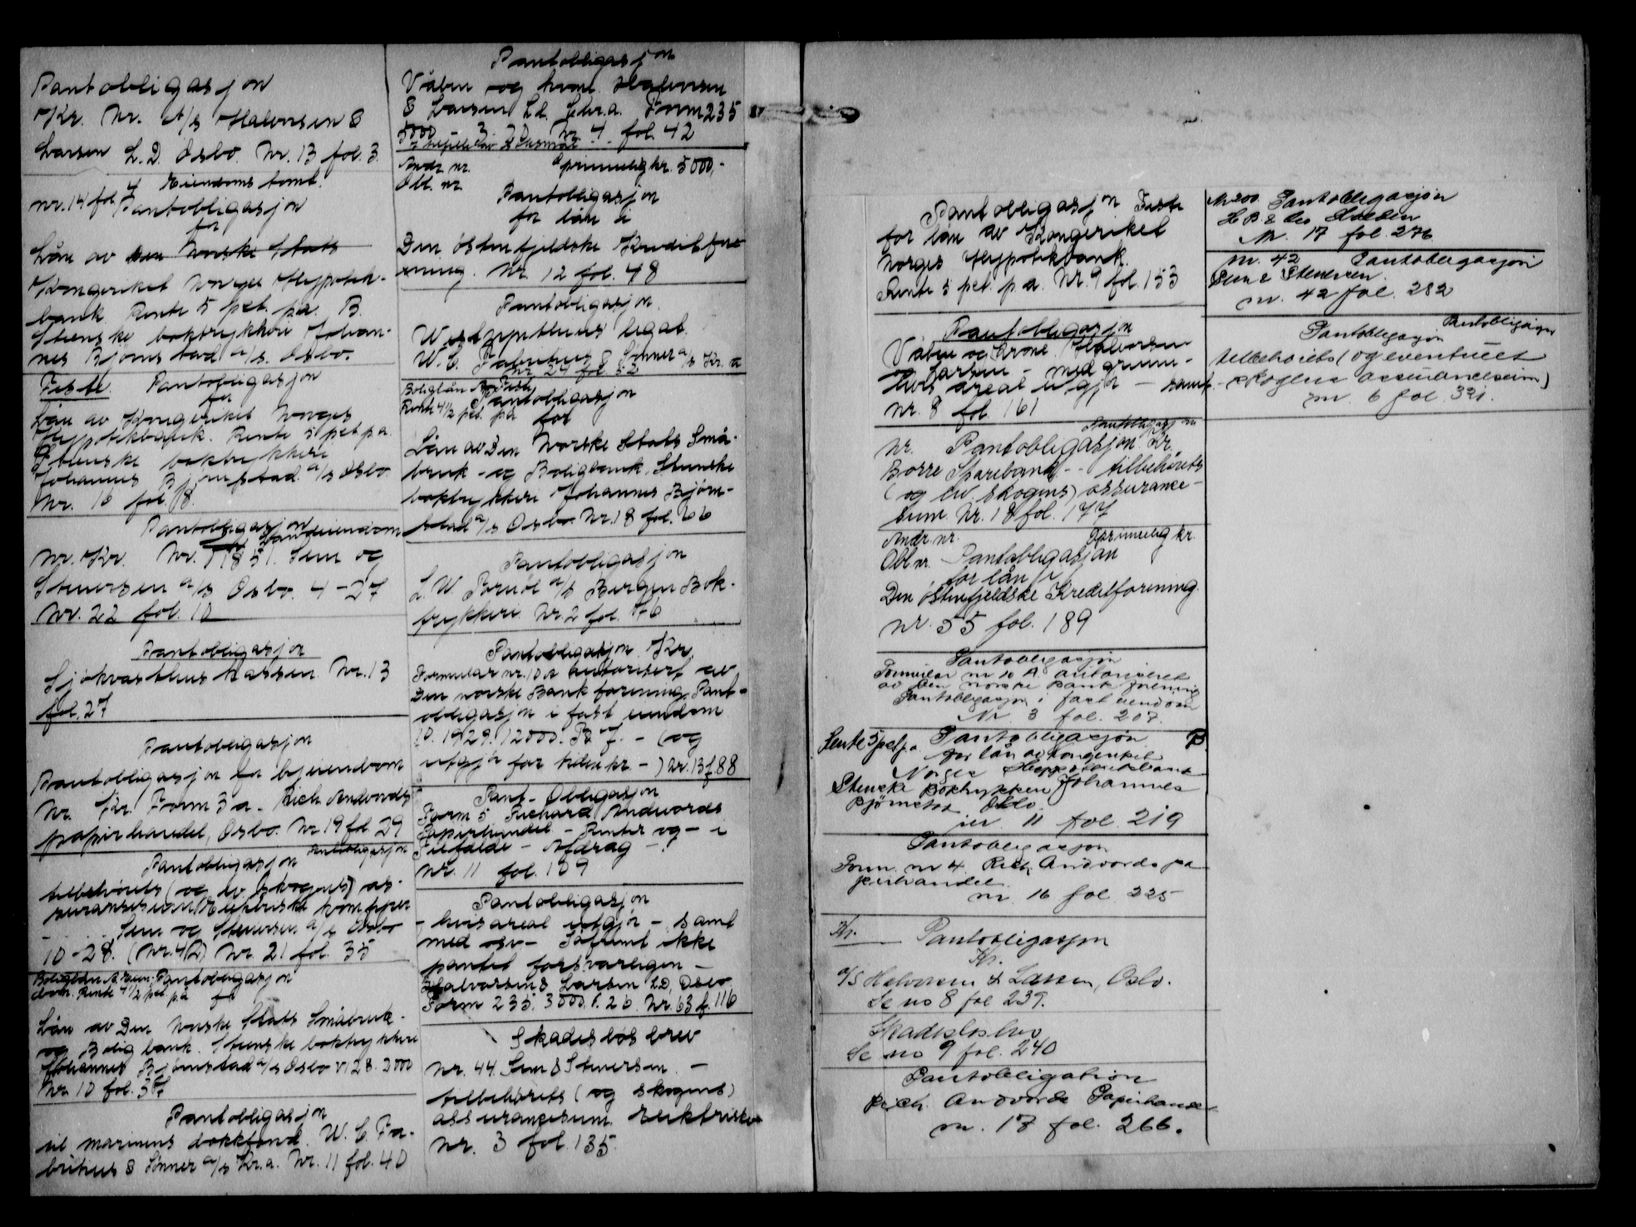 Pantobligasjon
Kr. Nr. A/s Halvorsen &
Larsen L.D. Oslo. Nr. 13 fol. 3.
Eiendoms tomt.
nr. 14 fol 4 Pantobligasjon
for
Lån av den Norske Stats
Kongeriket Norges Hypotek-
bank Rente 5 pct. p.a. B.
Stenske boktrykkeri Johan-
nes Bjørnstad a/s. Oslo.
Feste Pantobligasjon
for
Lån av Kongeriket Norges
Hypotekbank. Rente 5 pct p.a.
Stenske boktrykkeri
Johannes Bjørnstad a/s Oslo
Nr. 16 fol 8.
Pantobligasjon
Nr. Kr. Nr. Sem og
Stenersen a/s Oslo. 4-27
Nr. 22 fol. 10
Pantobligasjon
Nr. 13
fol. 27
Pantobligasjon
Pantobligasjon
Nr. Kr. Form 3 a. Rich. Andvords
papirhandel, Oslo. Nr 19 fol 29
Pantobligasjon
tilbehørets (og ev skogens) as-
Sem og Stenersen a/s Oslo
10-28. (Nr 42) Nr. 21 fol. 35
Pantobligasjon
Rente 4 1/2 pct p.a. for
Lån av Den Norske Stats Småbruk-
og Bolig bank. Stenske boktrykkeri
Johannes Bjørnstad a/s Oslo VI 28. 3000
Nr 10 fol. 37
Pantobligasjon
til marinens dokkfond. W. C. Fa-
britius & Sønner a/s Kr.a. Nr. 11 fol. 40
Pantobligasjon
Våben og krone Halvorsen
& Larsen Ld. Kr.a. Form 235
5000 3. 20 Nr 4. fol. 42
Andr nr. Oprinnelig kr. 5000.-
Obl. nr.
Pantobligasjon
for lån i
Den østenfjeldske Kreditfore
ning. Nr. 12 fol. 48
Pantobligasjon
legat.
W. C. Fabritius & Sønner a/s Kr. a
Boliglån
Rente 4 1/2 pct. p.a. Pantobligasjon
for
Lån av Den Norske Stats Små-
bruk- og Boligbank. Stenske
boktrykkeri Johannes Bjørn-
stad a/s Oslo. Nr. 18 fol. 66
Pantobligasjon
a/s Bergen Bok-
trykkeri Nr 2 fol. 76
Pantobligasjon Kr.
Formular nr. 10 a autorisert av
Den norske Bank forening Pant-
obligasjon i fast eiendom
10. 1929. 12000. - (og
utgjør for tiden kr. - ) Nr. 13 f 88
Pant-Obligasjon
Form 5 Richard Andvords
Papirhandel - Renter og - i
Tilfælde - Afdrag -?
Nr. 11 fol. 109
Pantobligasjon
- hvis areal utgjør - samt
med osv - Såfremt ikke
pantet forsvarligen -
Halvorsen & Larsen Ld, Oslo
Form 235. 3000. 1. 26. Nr. 63 f. 116
Skadesløsbrev
Nr. 44. Sem & Stenersen. -
tilbehørets (og skogens)
assurancesum
Nr. 3 fol. 135.
Pantobligasjon Feste
for lån av Kongeriket
Norges Hypotekbank.
Rente 5 pct. p a. Nr. 9 fol. 153
Pantobligasjon
Våben og krone. Halvorsen
og Larsen - med grunn-
hvis areal utgjør - samt -
nr. 8 fol 161
Pantobligasjon
Nr. Pantobligasjon Kr.
Borre Sparebank - - tilbehørets
(og ev. skogens) assurance-
sum. Nr. 18 fol. 177
Andr nr. Oprinnelig kr.
Obl nr. Pantobligasjon
for lån i
Den østenfjeldske Kreditforening.
Nr. 55 fol. 189
Pantobligasjon
Formular nr 10 A autoriseret
av Den norske Bank forening
Pantobligasjon i fast eiendom
Nr. 3 fol. 207.
Rente 5 pct p.a. Pantobligasjon B.
for lån av Kongeriket
Norges Hypotekbank
Stenske Boktrykkeri Johannes
Bjørnstad Oslo.
nr. 11 fol. 219
Pantobligasjon
Form. nr 4. Rich. Andvords pa
pirhandel.
nr 16 fol 225
Kr. Pantobligasjon
Kr.
A/S Halvorsen & Larsen, Oslo.
Se no 8 fol 239.
Skadesløsbrev
Se no 9 fol. 240
Pantobligation
Rich. Andvords Papirhandel
nr. 17 fol. 266.
Nr 200 Pantobligasjon
Nr. 17 fol. 276
Nr. 42 Pantobligasjon
Sem & Stenersen.
nr. 42 fol. 282
Pantobligasjon
Pantobligasjon
tilbehørets (og eventuelt
skogens assurancesum)
nr. 6 fol. 321.